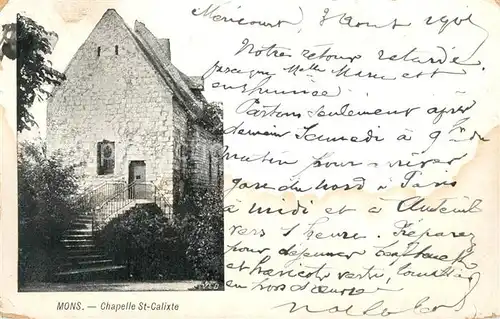 Méricourt, 8 Aout 190
Notre retour retardé
parceque Melle Marie est
enrhumée
Partons seulement après
demain Samedi à 9h du
matin pour arriver
gare du nord à Paris
à midi et à Auteuil
vers 1 heure. Préparez
pour déjeuner
et haricots verts, tomates
en hors d'œuvre
MONS. — Chapelle St-Calixte